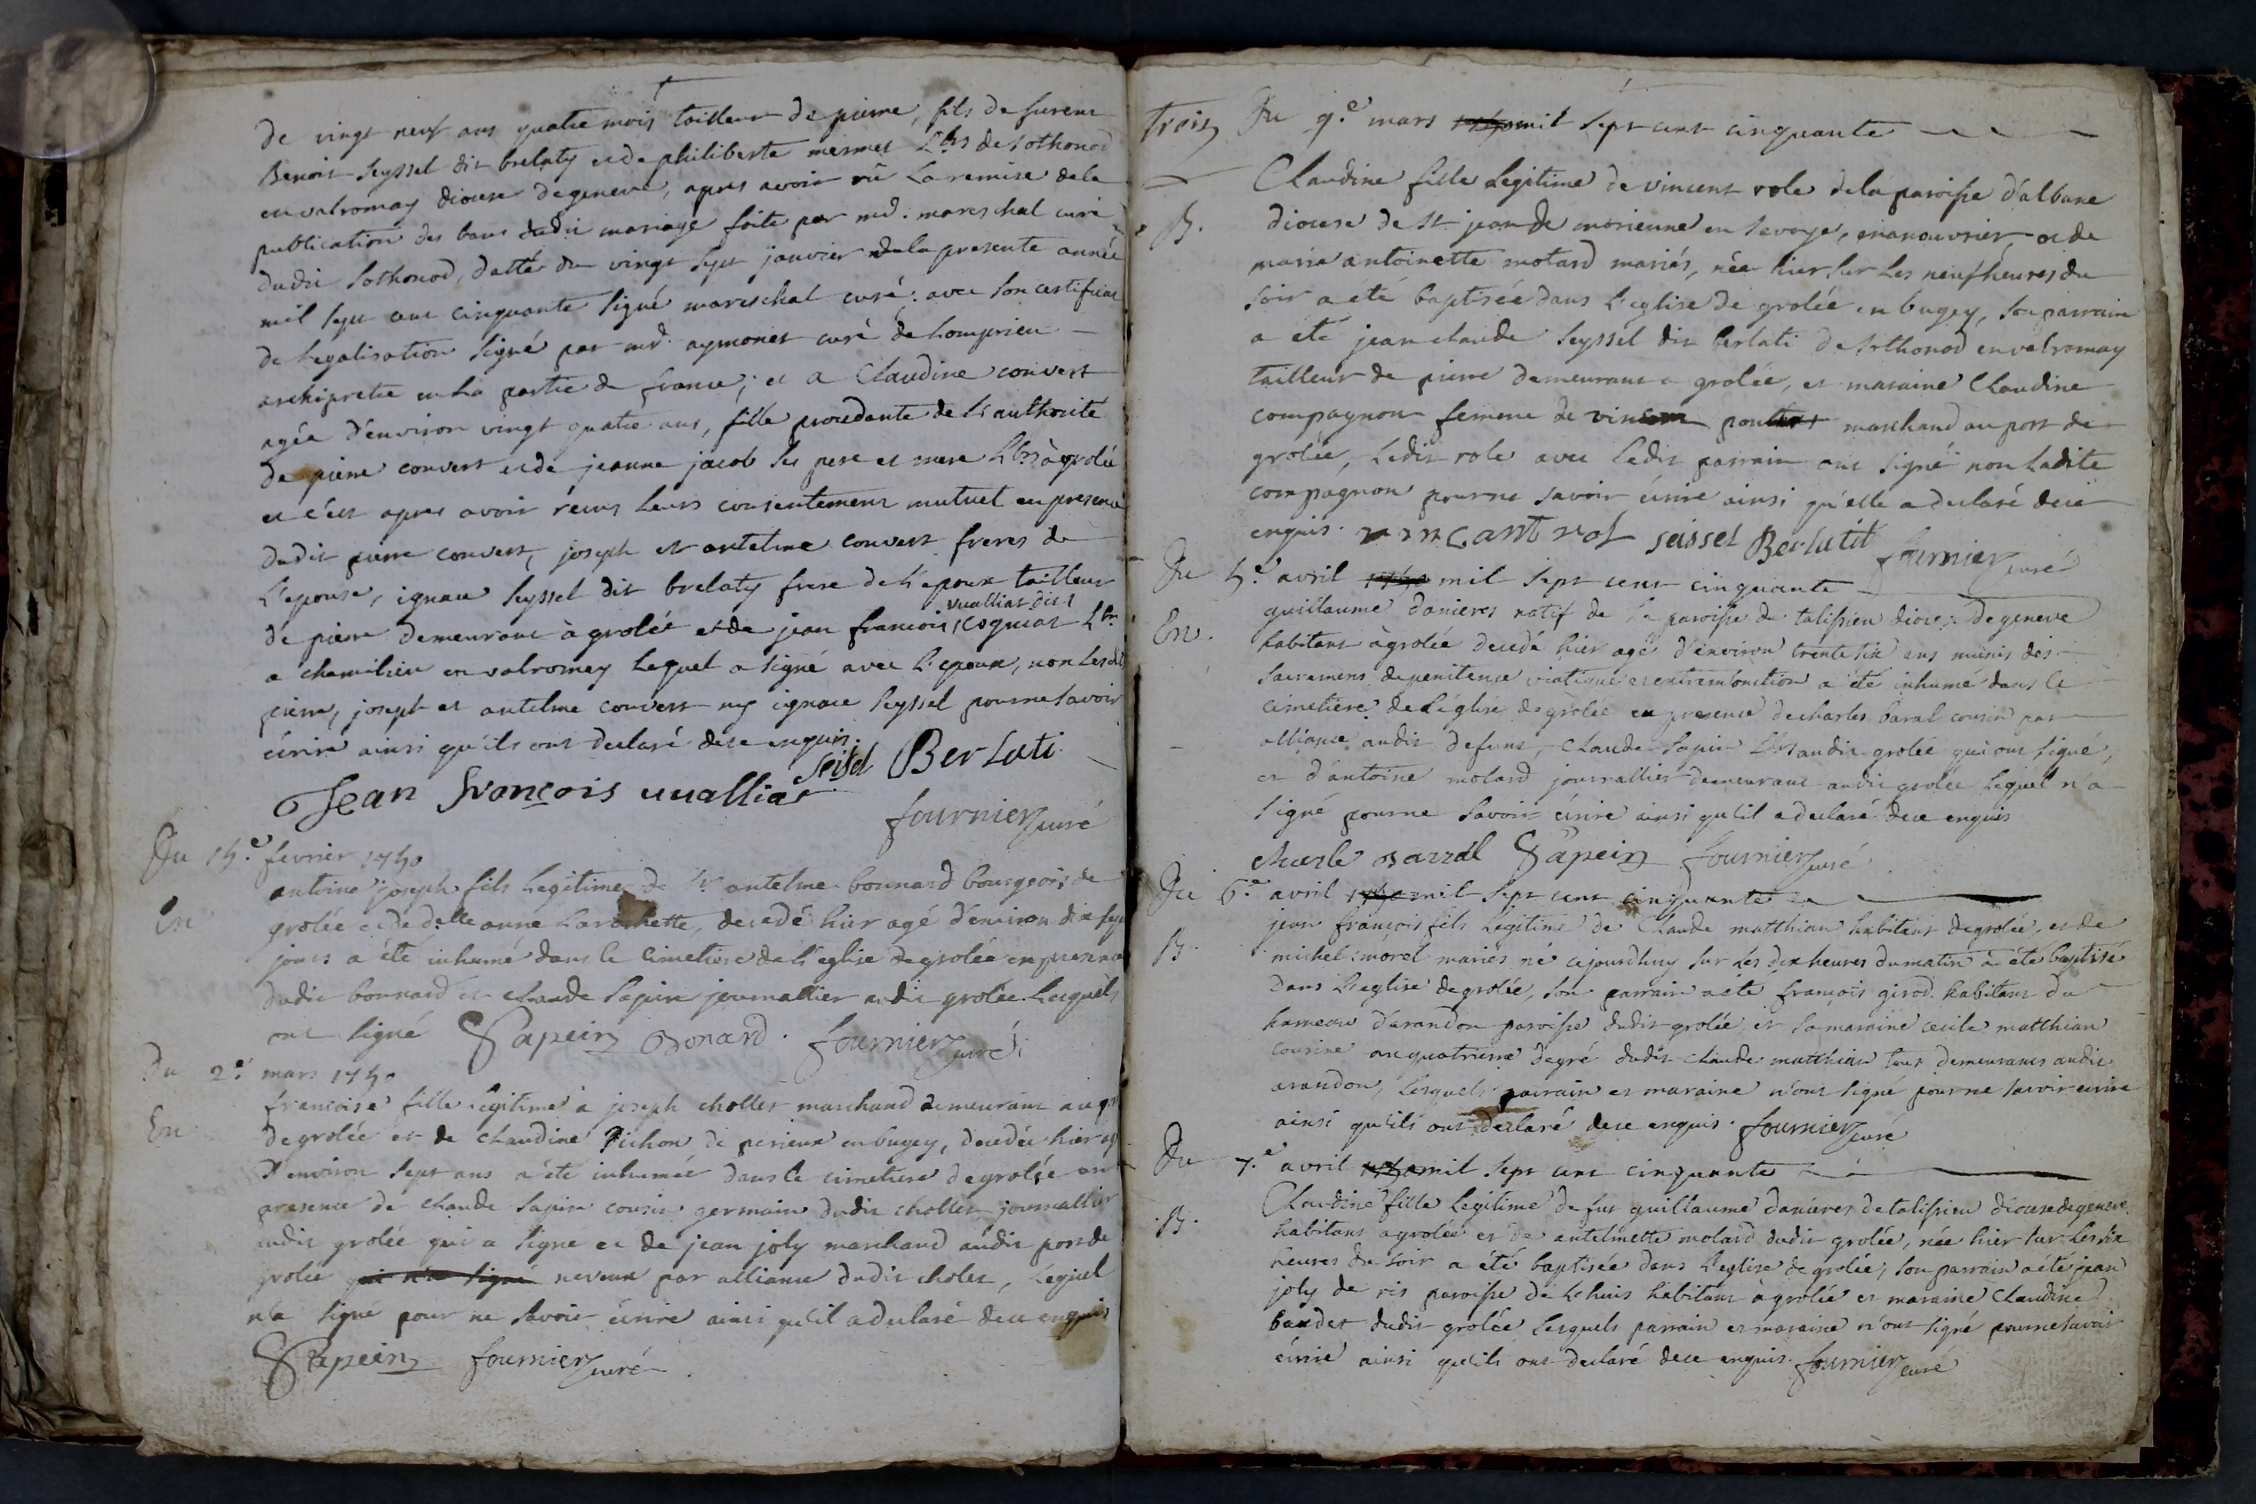 de vingt neuf ans quatre mois tailleur de pierre, fils de fureur
Benoit Seyssel dit brelaty et de philiberte mermet hbts de Sothonod
en valromay diocese de geneve, apres avoir vû La remise de la
publication des bans dudit mariage faite par md. mareschal curé
dudit Sothonod, dattée du vingt sept janvier de la presente année
mil sept cent cinquante Signé mareschal curé; avec son certificat
de Legalisation Signé par md. aymonet curé de Lomprieu
archipretre en La partie de france; et a Claudine convert
agée d'environ vingt quatre ans, fille procedante de L'authorité
de pierre convert et de jeanne jacob ses pere et mere hbts à grolée
et c'est apres avoir reçus Leurs consentement mutuel en presence
dudit pierre convert, joseph et antelme convert freres de
L'epouse, ignace Seyssel dit brelaty frere de L'epoux tailleur
vuallias dict
de pierre demeurant à grolée et de jean francois Cognias hbt
a chamilieu en valromey Lequel a signé avec L'epoux, non Lesdits
pierre, joseph et antelme convert ny ignace Seyssel pour ne savoir
écrire ainsi qu'ils ont declaré de ce enquis.
Jean françois uuallias Seisel Berlati
fournier curé
Du 15.e fevrier 1750
antoine joseph fils Legitime de Sr antelme bonnard bourgeois de
En
grolée et de delle anne Larochette, decedé hier agé d'environ dix sept
jours a été inhumé dans le cimetiere de L'eglise de grolée en presence
dudit bonnard et claude Sapin journallier audit grolée Lesquels
ont signé Sapein Bonard. fournier curé
Du 2.e mars 1750
francoise fille Legitime a joseph chollet marchand demeurant au port
En
de grolée et de claudine Pichon de perieux en bugey, decedée hier agée
d'environ sept ans a été inhumée dans le cimetiere de grolée en
presence de claude Sapin cousin germain dudit chollet journallier
audit grolée qui a signé et de jean joly marchand audit port de
grolée qui n'a signé neveux par alliance dudit cholet, Lequel
n'a signé pour ne savoir écrire ainsi qu'il a declaré de ce enquis
Sapein fournier curé
trois
Du 9.e mars 1750 mil sept cent cinquante
Claudine fille Legitime de vincent role de la paroisse d'albane
B.
diocese de St jean de morienne en Savoye, manouvrier, et de
maria antoinette motard mariés, née hier sur Les neuf heures du
soir a eté baptisée dans L'eglise de grolée en bugey, son parrain
a eté jean claude Seyssel dit berlati de Sothonod en valromay
tailleur de pierre demeurant a grolée, et maraine Claudine
compagnon femme de vincent marchand au port de
grolée, Ledit role avec Ledit parrain ont signé non Ladite
compagnon pour ne savoir écrire ainsi qu'elle a declaré de ce
enquis. vincant rol seissel Berlatit fournier curé
Du 5.e avril 1750 mil sept cent cinquante
guillaume danieres natif de La paroisse de talissieu diocese de geneve
En.
habitant à grolée decedé hier agé d'environ trente six ans munis des
Sacremens de penitence viatique et extremonction a été inhumé dans le
cimetiere de L'église de grolée en presence de charles baral cousin par
alliance audit defunt, Claude Sapin hbt audit grolée qui ont signé,
et d'antoine molard journallier demeurant audit grolée Lequel n'a
signé pour ne savoir écrire ainsi qu'il a declaré de ce enquis
charle barral Sapein fournier curé
Du 6.e avril 1750 mil sept cent cinquante
jean françois fils Legitime de Claude matthian habitant de grolée, et de
B.
michel morel mariés né cejourdhuy sur Les dix heures du matin a été baptisé
dans L'eglise de grolée, son parrain a été françois girod habitant du
hameau d'arandon paroisse dudit grolée et sa maraine cecile matthian
cousine au quatrieme degré dudit claude matthian tous demeurants audit
arandon, Lesquels parrain et maraine n'ont signé pour ne savoir ecrire
ainsi qu'ils ont declaré de ce enquis. fournier curé
Du 7.e avril 1750 mil sept cent cinquante
Claudine fille Legitime de fut guillaume danieres de talissieu diocese de geneve
B.
habitant a grolée et de antelmette molard dudit grolée, née hier sur Les six
heures du soir a été baptisée dans L'eglise de grolée, son parrain a été jean
joly de ris paroisse de Lhuis habitant à grolée et maraine Claudine
baudet dudit grolée Lesquels parrain et maraine n'ont signé pour ne savoir
écrire ainsi qu'ils ont declaré de ce enquis. fournier curé